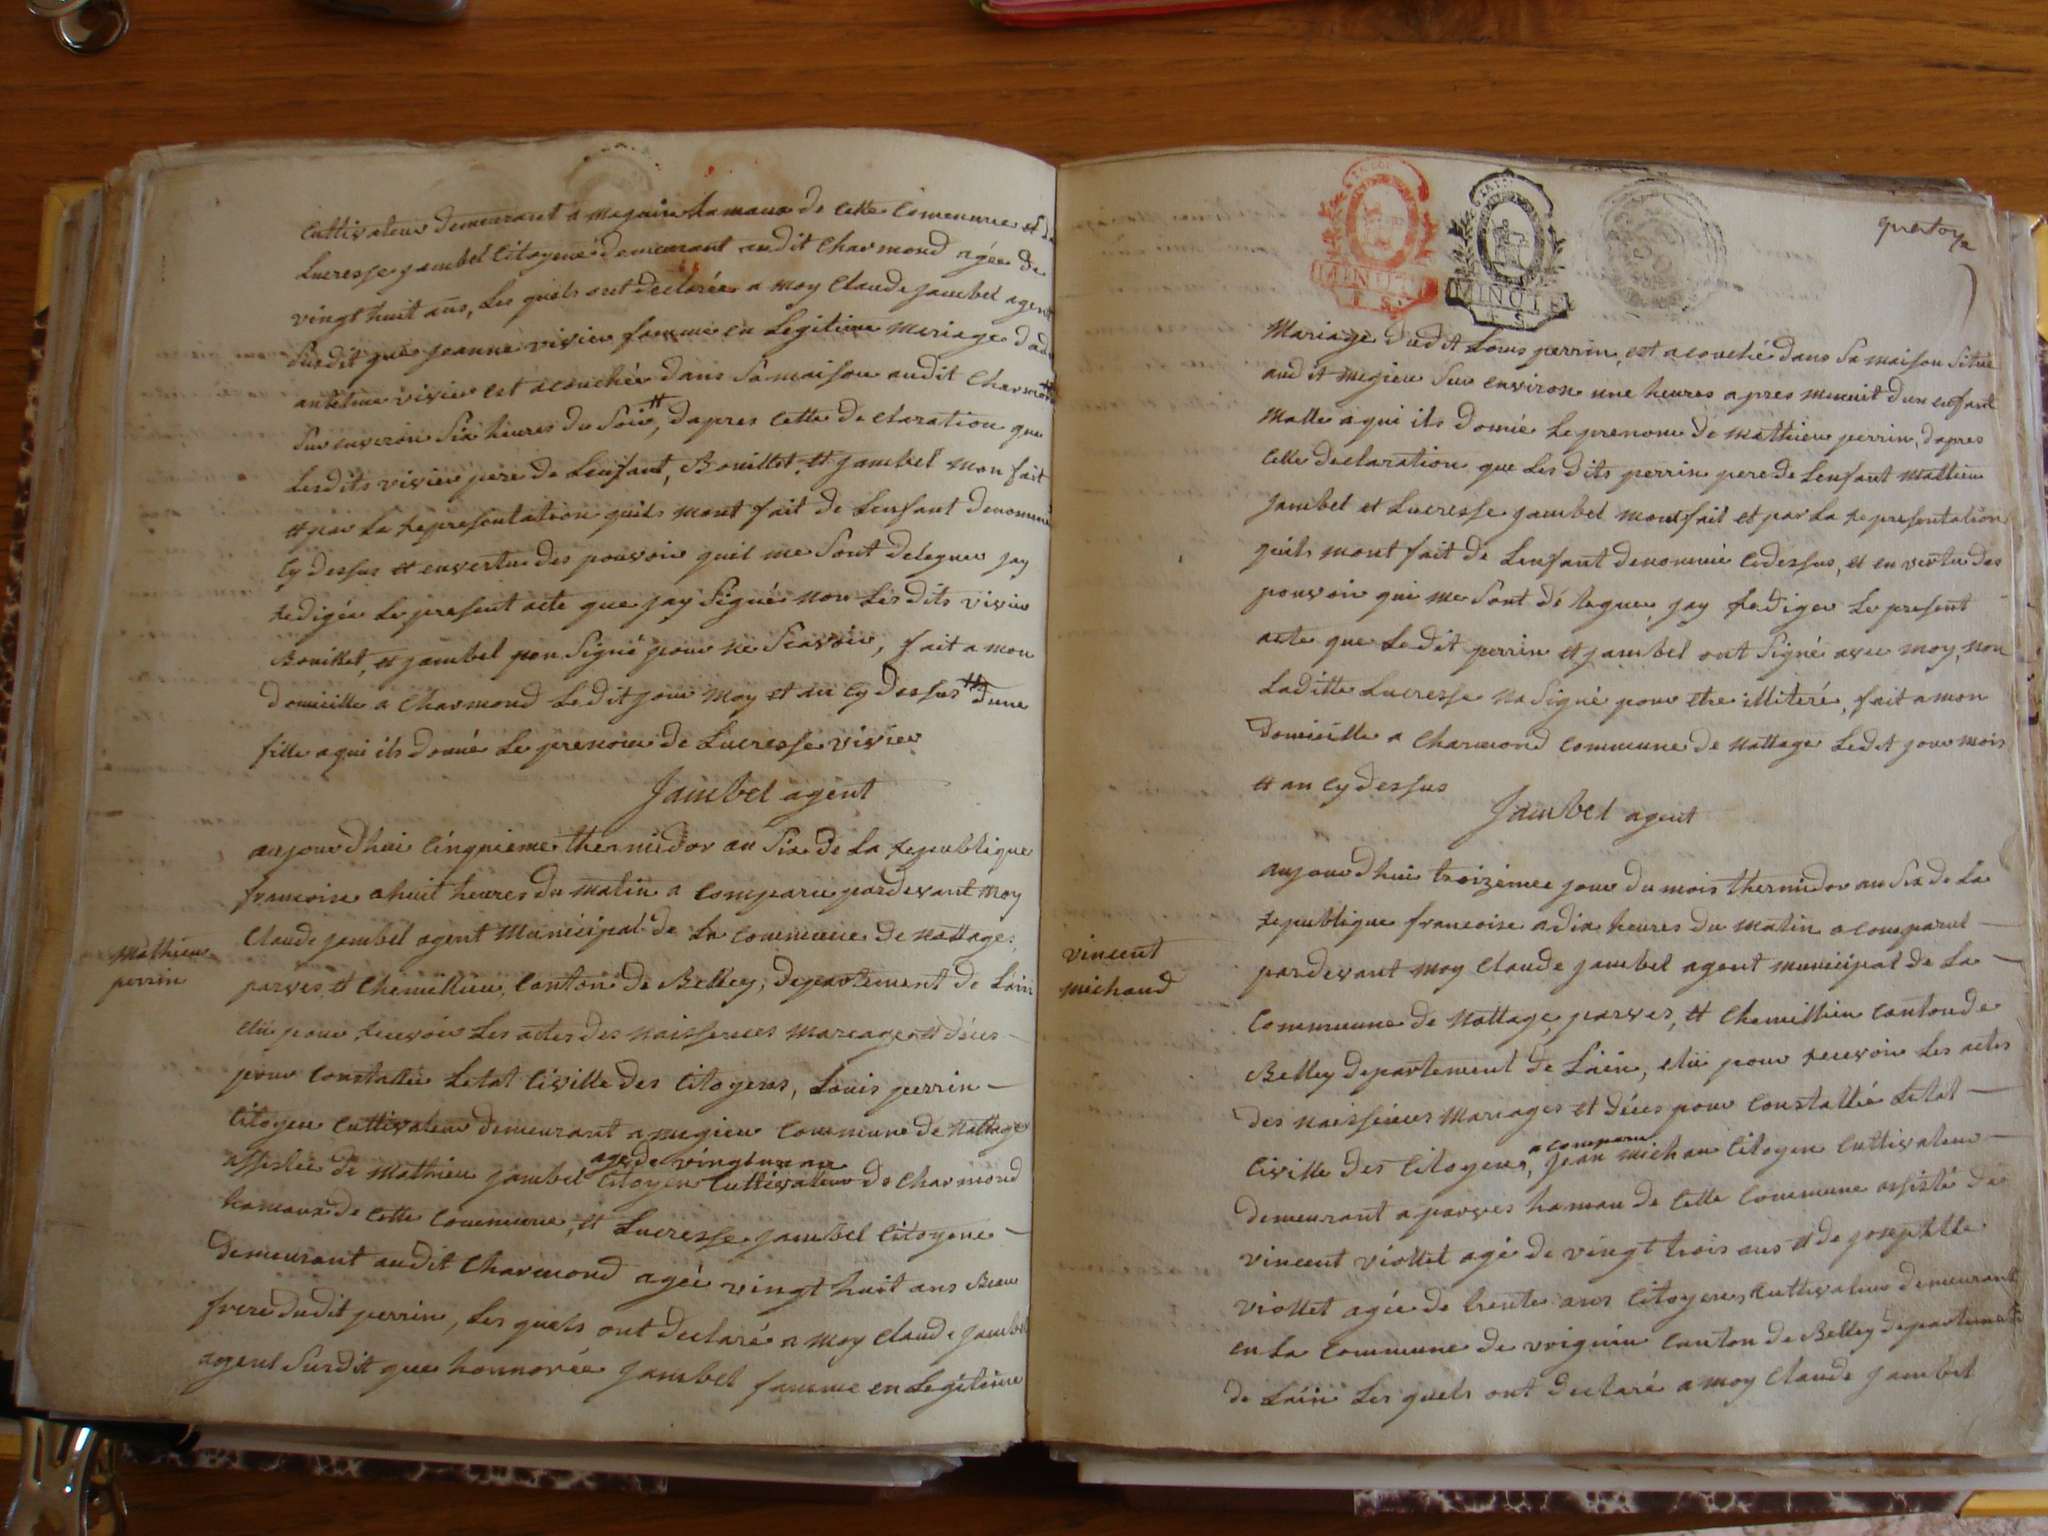 cultivateur demeurant a megieu hamaux de cette commune et de
Lucresse jambel citoyene demeurant audit Charmond agée de
vingt huit ans, Les quels ont declarée a moy Claude jambel agent
susdit que jeanne vivier famme en Legitime mariage dud
antelme vivier est acouchée dans sa maison audit Charmond
sur environ six heures du soir, # dapres cette declaration que
Lesdits vivier pere de Lenfant, Bouillet, et jambel mon fait
et par La representation quils mont fait de Lenfant denommé
cy dessus et en vertu des pouvoir quil me sont deleguer jay
redigée Le present acte que jay signé non Les dits vivier
Bouillet, et jambel non signé pour ne scavoir, fait a mon
domicille a Charmond Ledit jour moy et an cy dessus # dune
fille a qui ils donné Le prenom de Lucresse vivier
Jambel agent
aujourdhui cinquieme thermidor an six de La republique
francoise a huit heures du matin a comparu pardevant moy
Claude jambel agent municipal de La commune de Nattages
Mathieu
perrin
parves, et Chemillieu, canton de Belley, departement de Lain
elu pour recevoir Les actes des naissences mareages et déces
pour constattée Letat civille des citoyens, Louis perrin
citoyen cultivateur demeurant a megieu commune de Nattages
agé de vingt un an
assistée de Mathieu jambel citoyen cultivateur de Charmond
hamaux de cette commune, et Lucresse jambel citoyene
demeurant audit Charmond agéé vingt huit ans Beau
frere dudit perrin, Les quels ont declaré a moy Claude jambel
agent susdit que honnorée jambel famme en Legitime
quatorze
MINUTE
MINUTE
Mariage dudit Louis perrin, est acouché dans sa maison situé
audit megieu sur environ une heures apres minuit dun enfant
malle a qui ils donné Le prenom de mathieu perrin, dapres
cette declaration que Les dits perrin pere de Lenfant mathieu
jambel et Lucresse jambel mont fait et par La representation
quils mont fait de Lenfant denommé cidessus, et en vertu des
pouvoir qui me sont déleguer, jay rediger Le present
acte que Ledit perrin et jambel ont signé avec moy, non
Laditte Lucresse na signé pour etre illiteré, fait a mon
domicille a Charmond commune de Nattage Ledit jour mois
et an cy dessus
Jambel agent
aujourdhui troizémee jour du mois thermidor an six de La
republique francoise a dix heures du matin a comparut
vincent
michaud
pardevant moy Claude jambel agent municipal de La
commune de Nattage, parves, et Chemillieu canton de
Belley departement de Lain, elu pour recevoir Les actes
des naissences mariages et déces pour constattée Letat
a comparu
civille des citoyens, jean michau citoyen cultivateur
demeurant a parves hamau de cette commune assisté de
vincent viollet agé de vingt trois ans et de josephtte
viollet agée de trente ans citoyens cultivateur demeurant
en La commune de virignin canton de Belley departement
de Lain Les quels ont declaré a moy Claude jambel